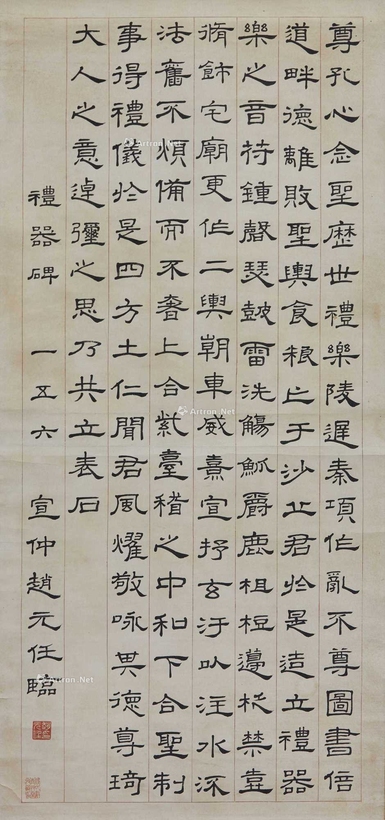 尊孔心念聖歷世禮樂陵遲秦項作亂不尊圖書倍
道畔德離敗聖輿食粮亡于沙丘君於是造立禮器
樂之音苻鍾磬瑟鼓雷洗觴觚爵鹿柤梪籩柉禁壼
脩飾宅廟更作二輿朝車威熹宣抒玄汙以注水流
法舊不煩備而不奢上合紫臺稽之中和下合聖制
事得禮儀於是四方土仁聞君風燿敬咏其德尊琦
大人之意逴彌之思乃共立表石
禮器碑 一五六 宣仲趙元任臨
Artron.Net
Artron.Net
Artron.Net